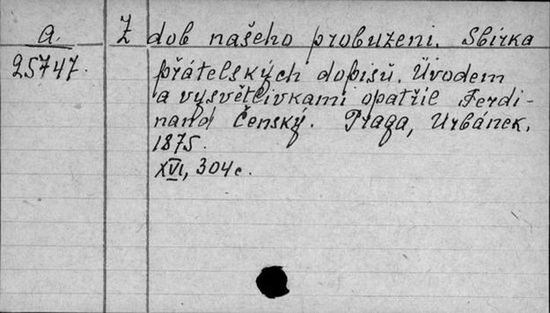 a. Z dob našeho probuzeni. Sbírka
25747. přátelských dopisů. Úvodem
a vysvětlivkami opatřil Ferdi-
nand Čenský. Praga, Urbánek.
1875.
XVI, 304 c.